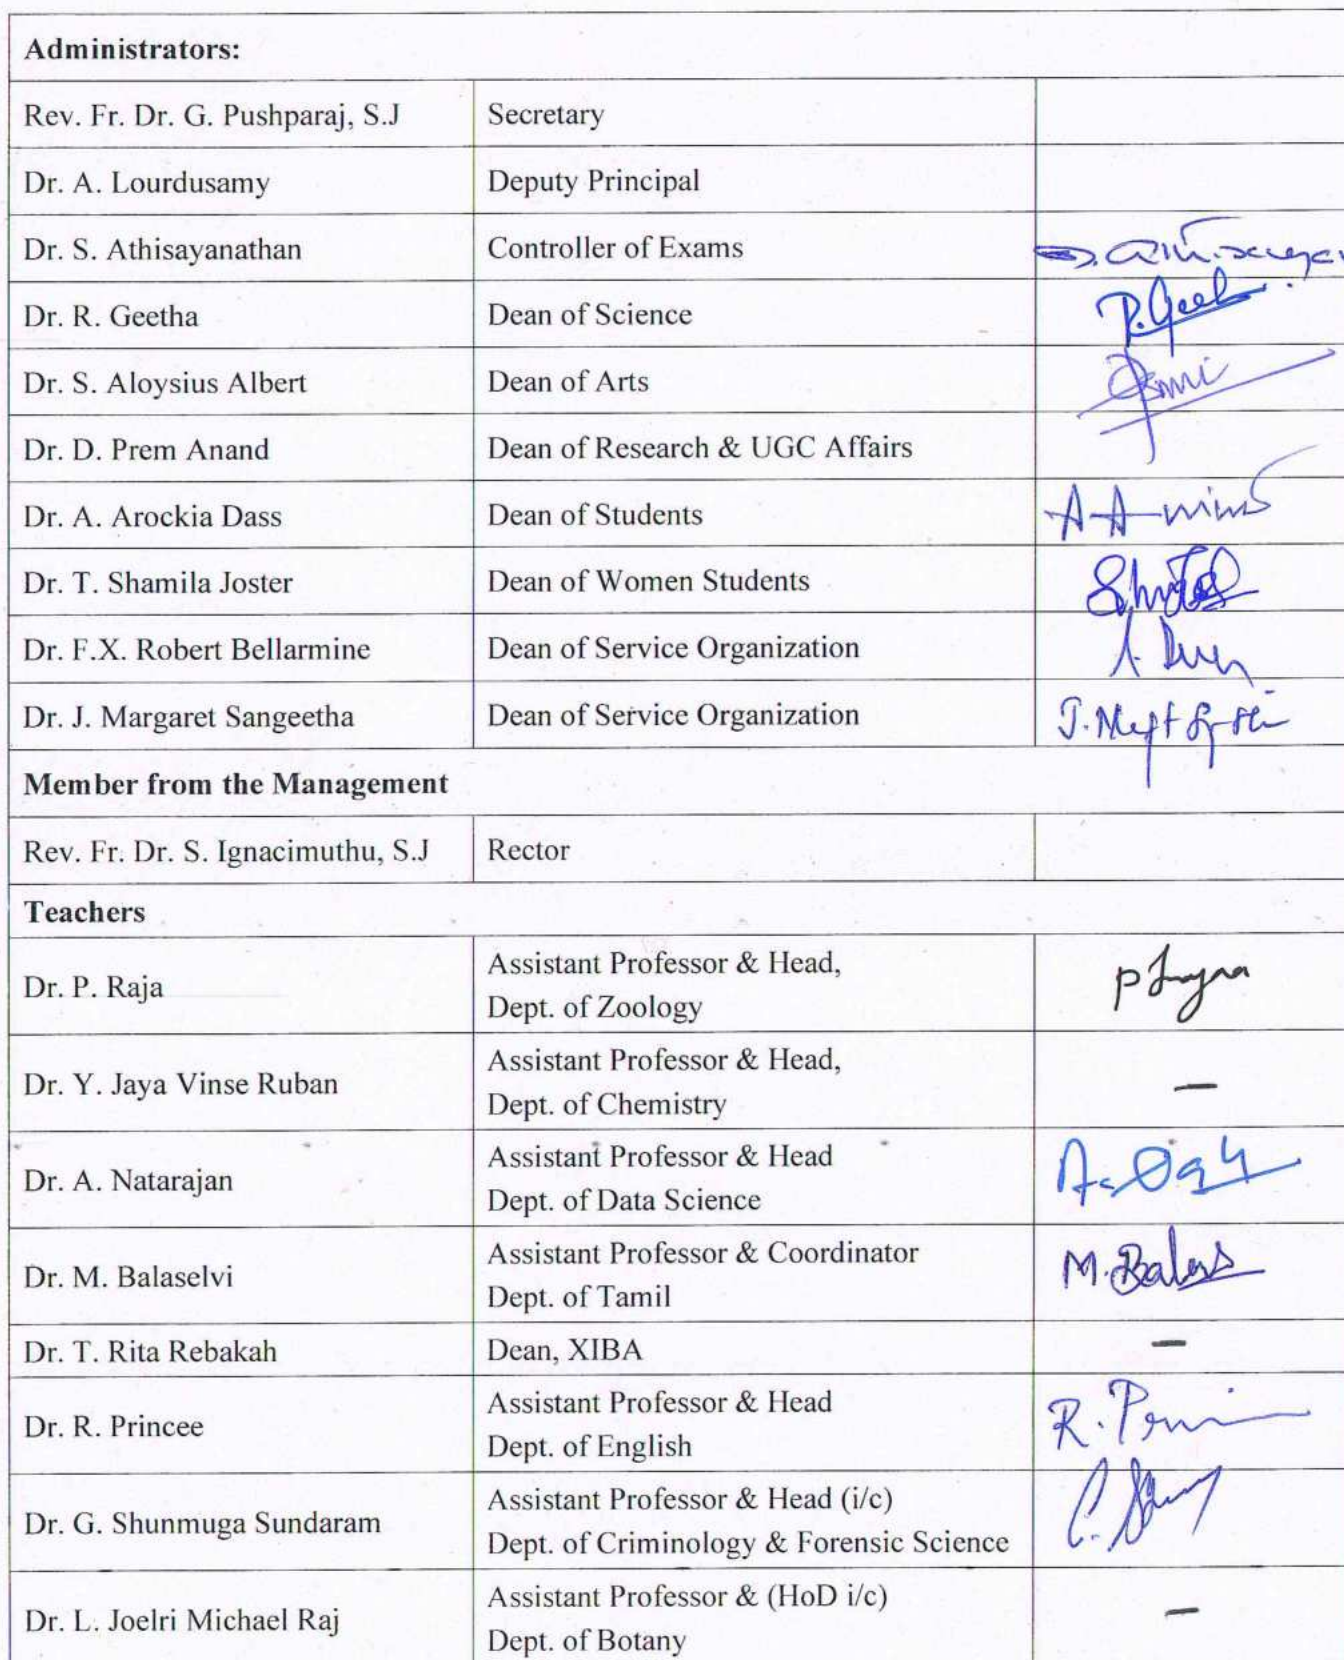 Administrators:
Rev. Fr. Dr. G. Pushparaj, S.J Secretary
Dr. A. Lourdusamy Deputy Principal
Dr. S. Athisayanathan Controller of Exams
Dr. R. Geetha Dean of Science
Dr. S. Aloysius Albert Dean of Arts
Dr. D. Prem Anand Dean of Research & UGC Affairs
Dr. A. Arockia Dass Dean of Students
Dr. T. Shamila Joster Dean of Women Students
Dr. F.X. Robert Bellarmine Dean of Service Organization
Dr. J. Margaret Sangeetha Dean of Service Organization
Member from the Management
Rev. Fr. Dr. S. Ignacimuthu, S.J Rector
Teachers
Dr. P. Raja Assistant Professor & Head,
Dept. of Zoology
Dr. Y. Jaya Vinse Ruban Assistant Professor & Head, –
Dept. of Chemistry
Dr. A. Natarajan Assistant Professor & Head
Dept. of Data Science
Dr. M. Balaselvi Assistant Professor & Coordinator
Dept. of Tamil
Dr. T. Rita Rebakah Dean, XIBA –
Dr. R. Princee Assistant Professor & Head
Dept. of English
Dr. G. Shunmuga Sundaram Assistant Professor & Head (i/c)
Dept. of Criminology & Forensic Science
Dr. L. Joelri Michael Raj Assistant Professor & (HoD i/c) –
Dept. of Botany